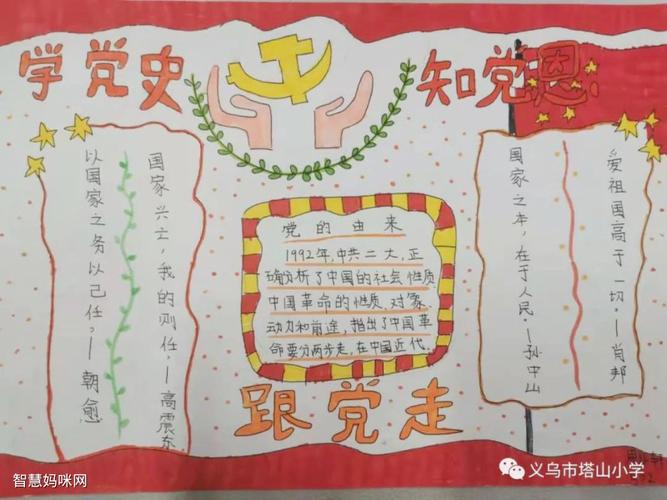 学党史
知党恩
以国家之务以己任。——朝愈
国家兴士，我的则任。——高震东
党的由来
1992年，中共二大，正
确分析了中国的社会性质
中国革命的性质、对象、
动力和前途，指出了中国革
命要分两步走，在中国近代。
国家之本，在于人民。——孙中山
爱祖国高于一切。——肖邦
跟党走
智慧妈咪网
义乌市塔山小学